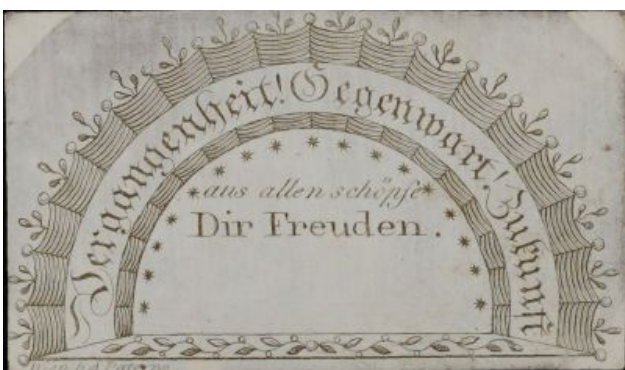 Vergangenheit! Gegenwart! Zukunft
aus allen schöpfe
Dir Freuden.